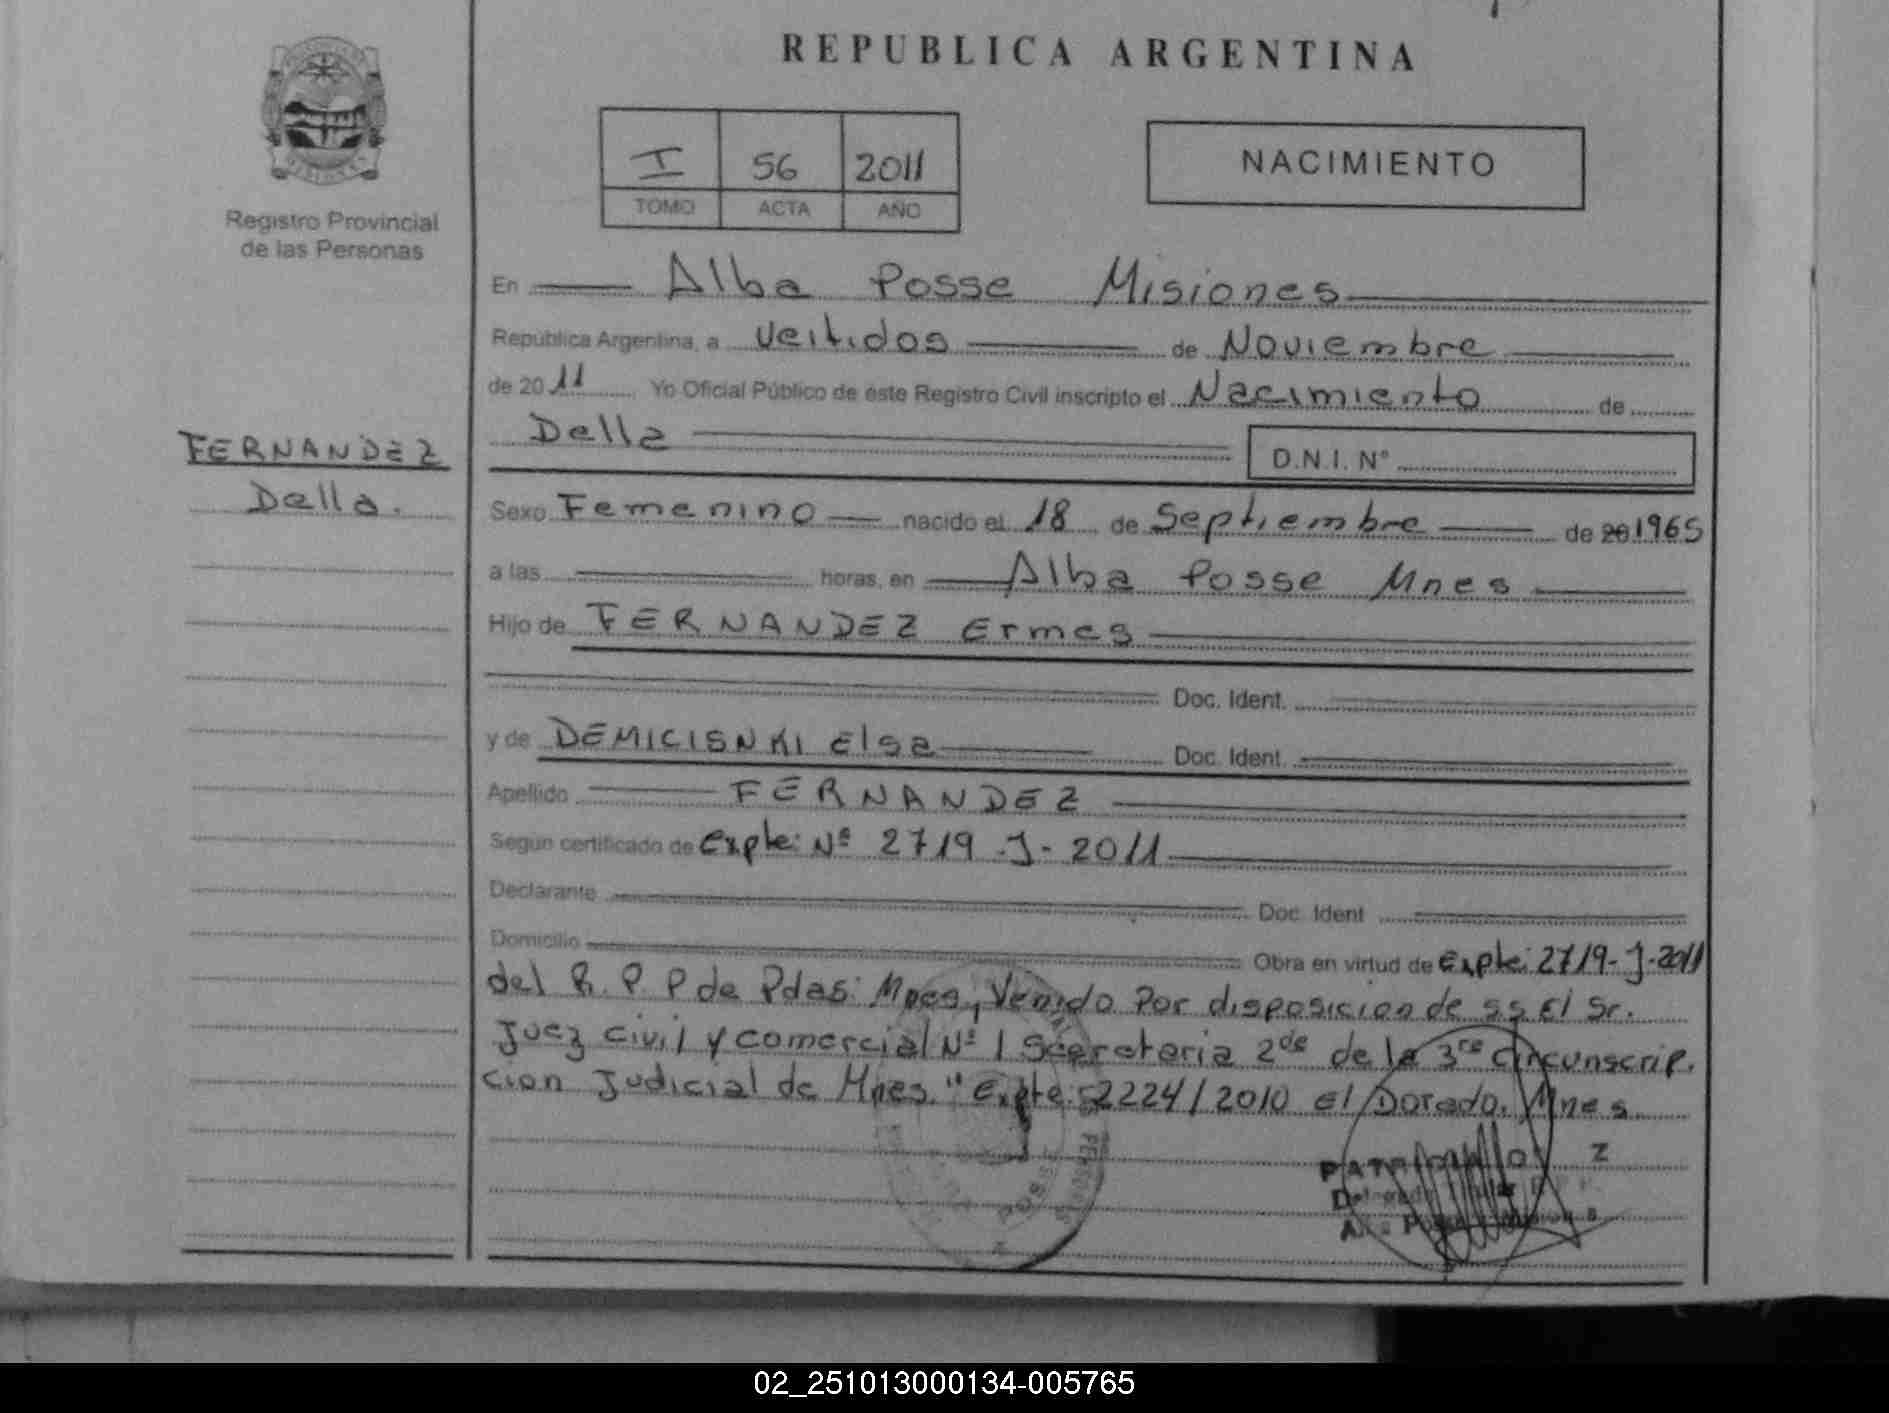 REPUBLICA ARGENTINA
I 56 2011
TOMO ACTA AÑO
NACIMIENTO
Registro Provincial
de las Personas
FERNANDEZ
Della.
En Alba Posse Misiones
República Argentina, a Veitidos de Noviembre
de 2011 Yo Oficial Público de este Registro Civil inscripto el Nacimiento de
Della D.N.I. Nº
Sexo Femenino nacido el 18 de Septiembre de 20 1965
a las horas, en Alba Posse Mnes
Hijo de FERNANDEZ Ermes
Doc. Ident.
y de DEMICISNKI Elsa Doc. Ident.
Apellido FERNANDEZ
Según certificado de Expte: Nº 2719 J- 2011
Declarante Doc. Ident
Domicilio Obra en virtud de Expte: 2719-J-2011
del R. P. P de Pdas: Mnes, Venido Por disposicion de S.S El Sr.
Juez Civil y Comercial Nº 1 Secretaria 2da de la 3ra Circunscrip.
cion Judicial de Mnes. "Expte: 2224/2010 El Dorado. Mnes
02_251013000134-005765